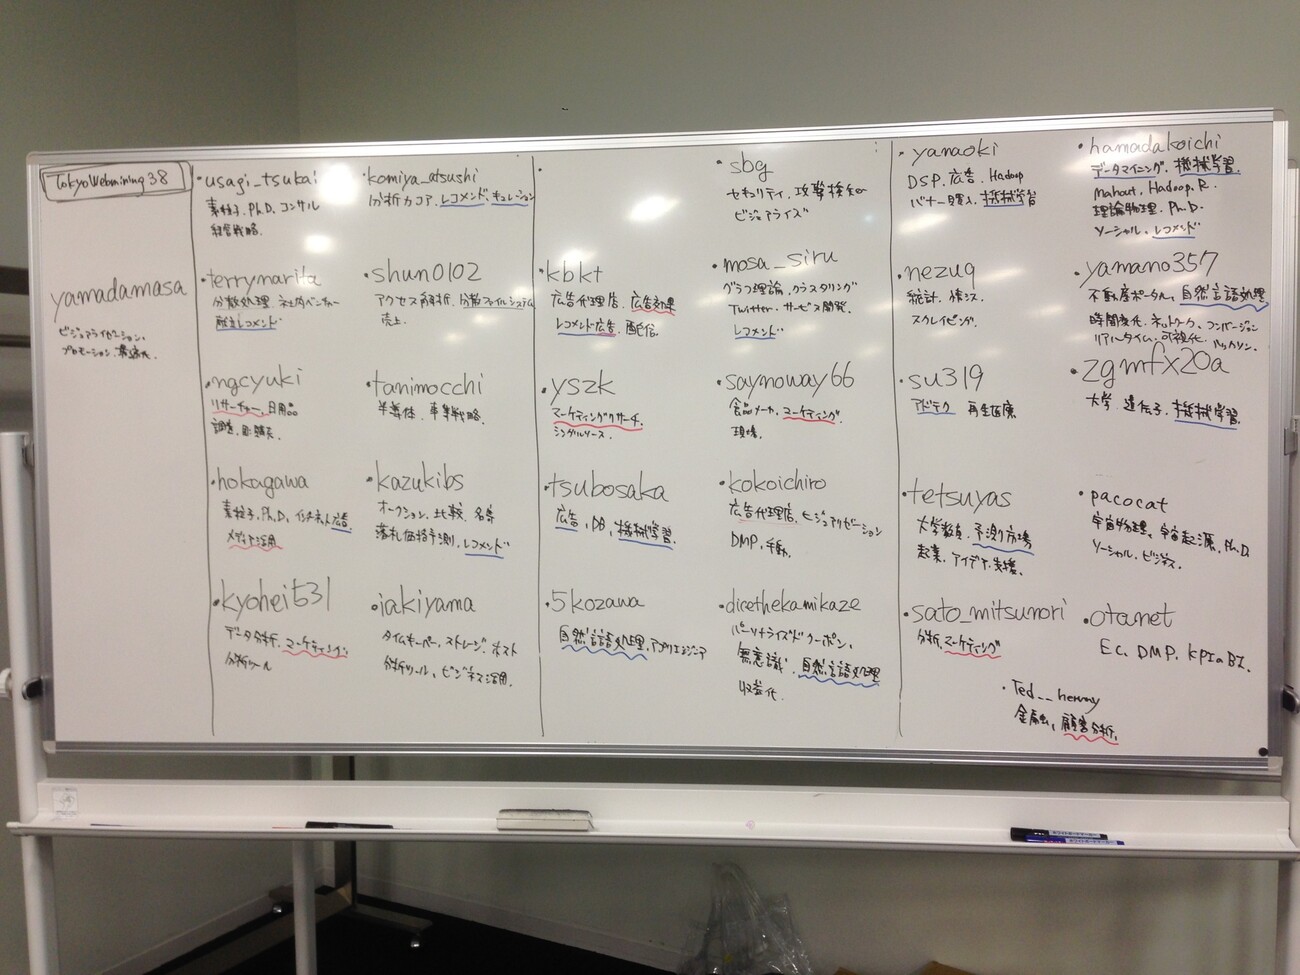 TokyoWebmining 38
yamadamasa
ビジュアライゼーション、
プロモーション
・usagi_tsukai
素粒子、Ph.D. コンサル
経営戦略、
・terrymarita
分散処理
・ngcyuki
リサーチャー、日用品
調査、
・hokagawa
素粒子、Ph.D、インターネット広告
メディア活用
・kyohei531
データ分析、マーケティング、
分析ツール
komiya_atsushi
レコメンド、キュレーション
・shun0102
アクセス解析、分散ファイルシステム
売上、
・tanimocchi
半導体、事業戦略、
・kazukibs
オークション、比較、名寄
落札価格予測、レコメンド
・iakiyama
タイムキーパー、ストレージ、ホスト
分析ツール、ビジネス活用、
・kbkt
広告代理店、広告効果
レコメンド広告、配信、
・yszk
マーケティングリサーチ、
シングルソース、
・tsubosaka
広告、DB、機械学習、
・5kozawa
自然言語処理、アプリエンジニア
・sbg
セキュリティ、攻撃検知
ビジュアライズ
・mosa_siru
グラフ理論、クラスタリング
Twitter、サービス開発、
レコメンド
・saynoway66
食品メーカ、マーケティング、
現場、
・kokoichiro
広告代理店、ビジュアリゼーション
DMP、手動、
・dicethekamikaze
パーソナライズドクーポン、
無意識、自然言語処理
収益化、
・yanaoki
DSP、広告、Hadoop
バナー購入、機械学習
・nezuq
統計、
スクレイピング、
・su319
アドテク 再生医療
・tetsuyas
大学教員、予測市場
起業、アイデア支援、
・sato_mitsunori
分析、マーケティング
・Ted__henry
金融、顧客分析、
・hamadakoichi
データマイニング、機械学習、
Mahout、Hadoop、R、
理論物理、Ph.D.
ソーシャル、レコメンド
・yamano357
不動産ポータル、自然言語処理
時間変化、ネットワーク、コンバージョン
リアルタイム、可視化、ハッカソン、
・zgmfx20a
大学、遺伝子、機械学習、
・pacocat
宇宙物理、宇宙起源、Ph.D.
ソーシャル、ビジネス、
・otanet
EC、DMP、KPI、BI、